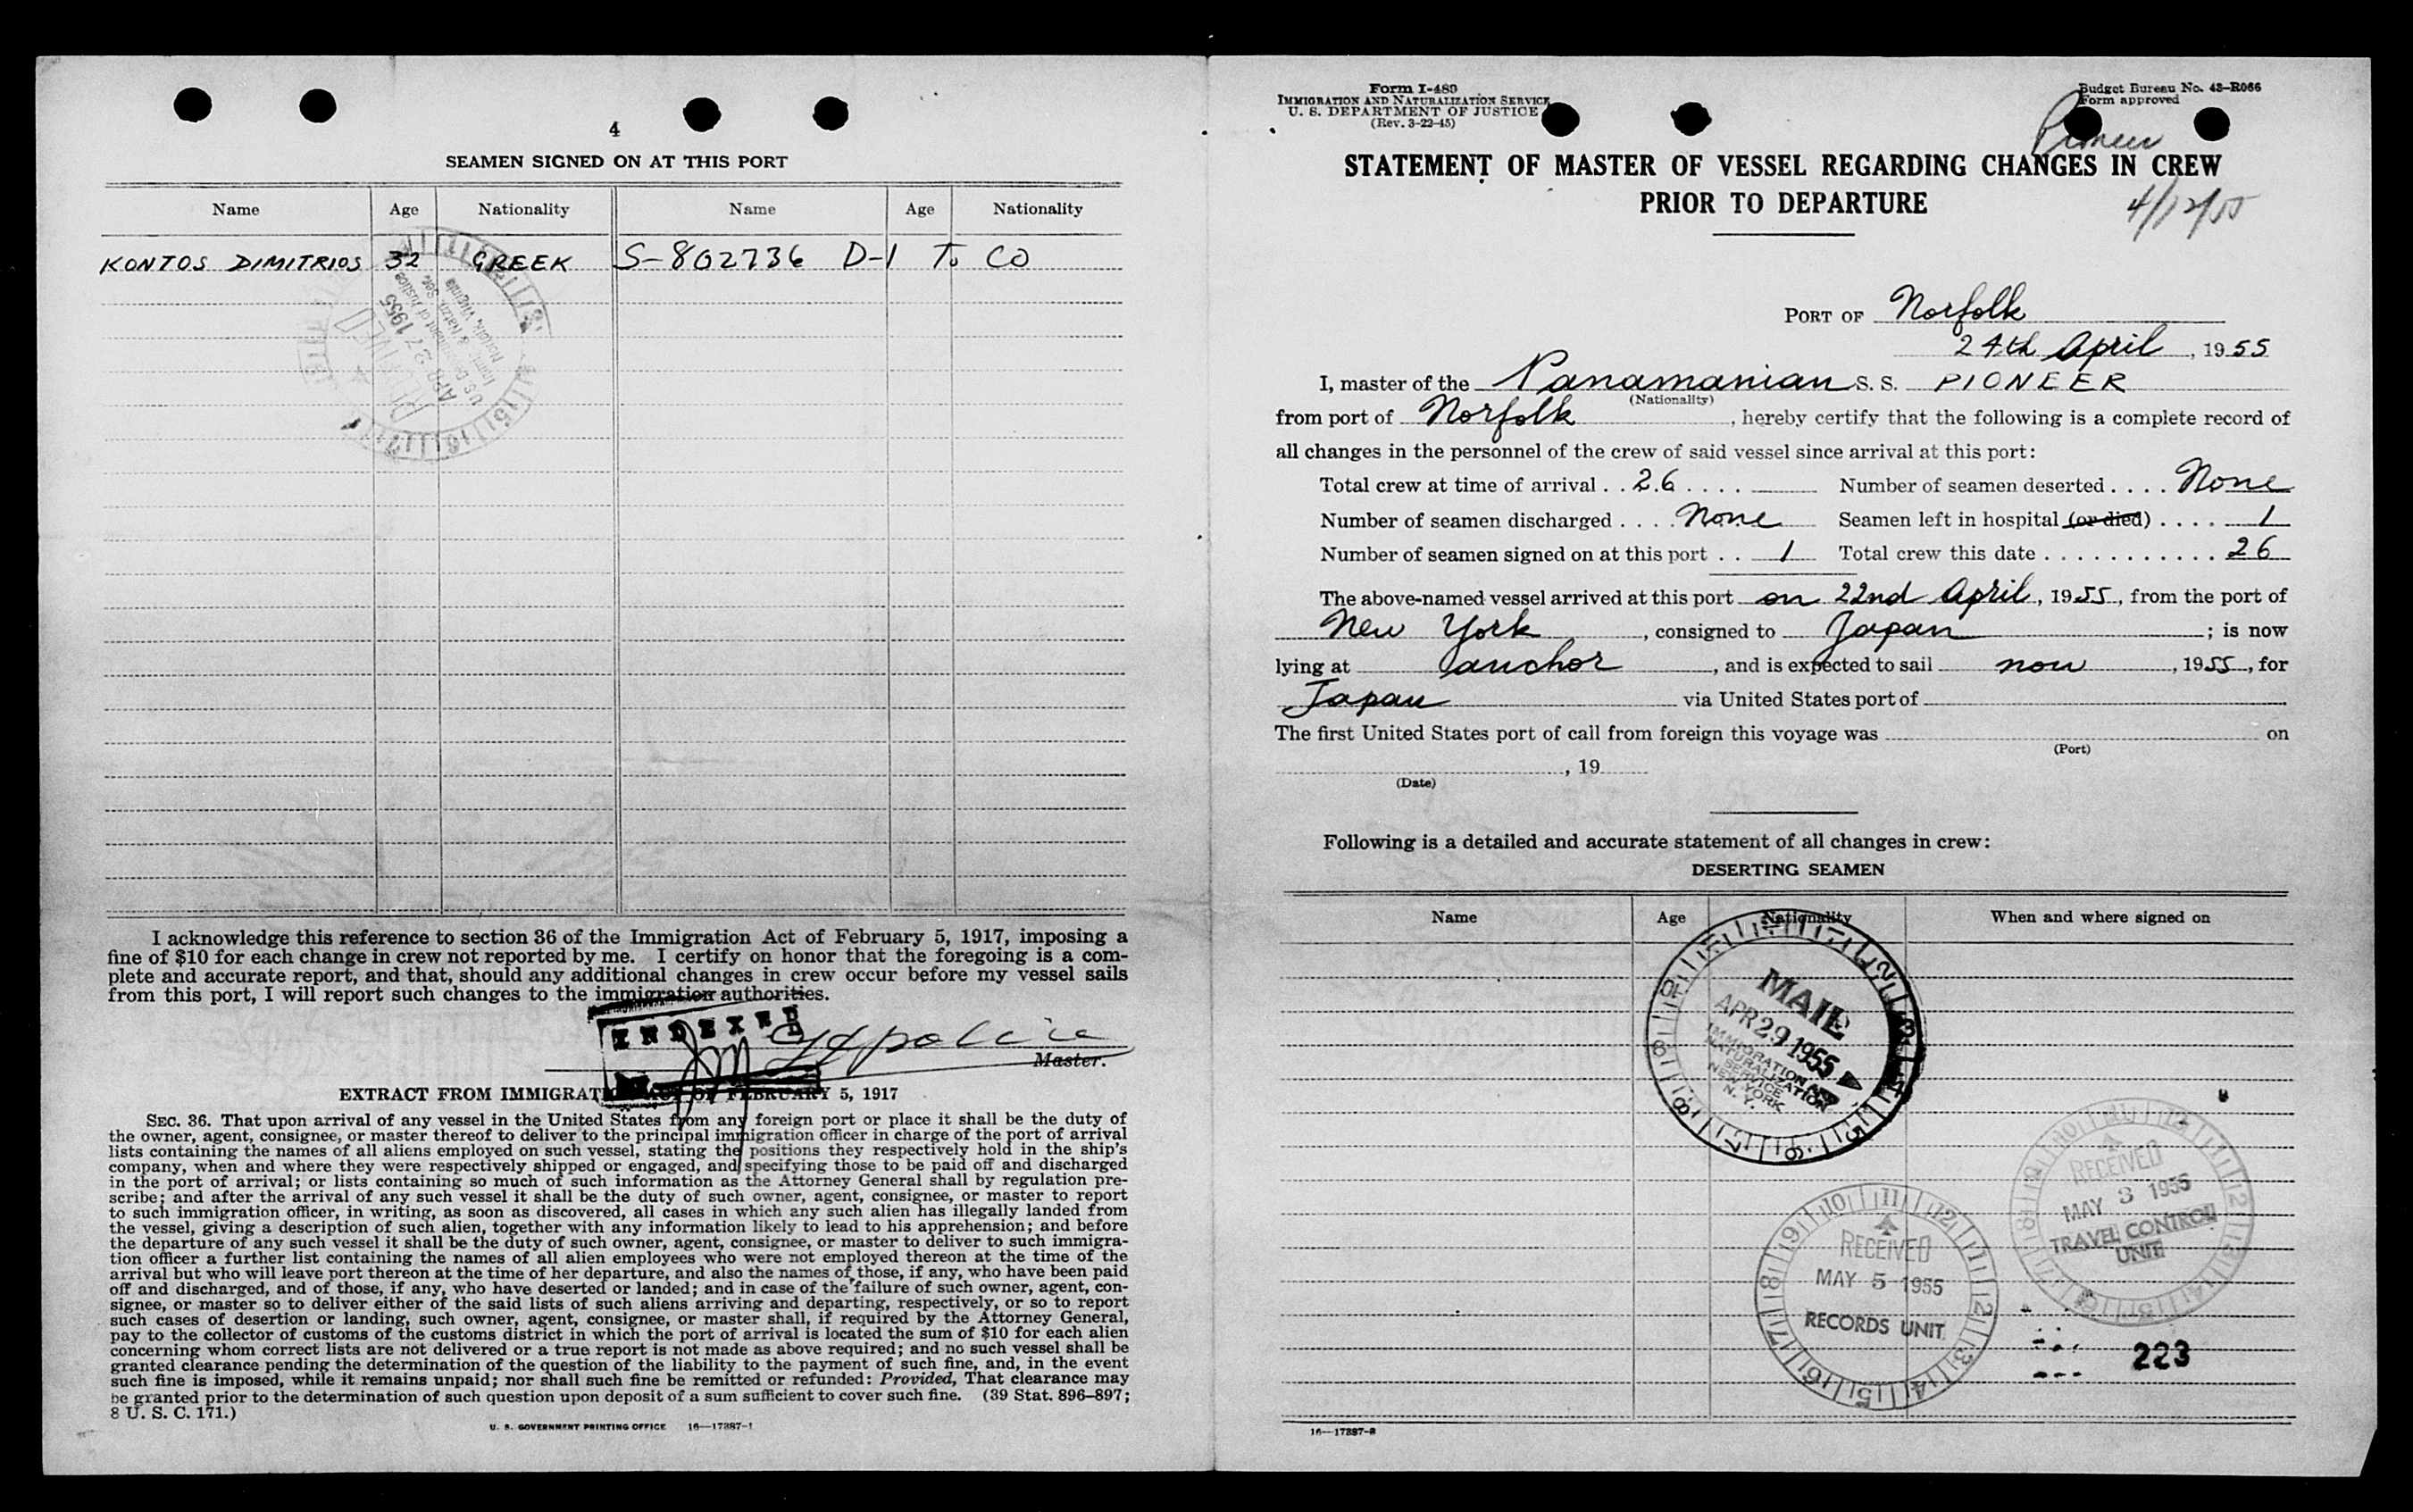 4
SEAMEN SIGNED ON AT THIS PORT
Name Age Nationality Name Age Nationality
KONTOS DIMITRIOS 32 GREEK S-802736 D-1 To CO
APR 27 1955
I acknowledge this reference to section 36 of the Immigration Act of February 5, 1917, imposing a
fine of $10 for each change in crew not reported by me. I certify on honor that the foregoing is a com-
plete and accurate report, and that, should any additional changes in crew occur before my vessel sails
from this port, I will report such changes to the immigration authorities.
INDEXED
Master.
EXTRACT FROM IMMIGRATION ACT OF FEBRUARY 5, 1917
SEC. 36. That upon arrival of any vessel in the United States from any foreign port or place it shall be the duty of
the owner, agent, consignee, or master thereof to deliver to the principal immigration officer in charge of the port of arrival
lists containing the names of all aliens employed on such vessel, stating the positions they respectively hold in the ship's
company, when and where they were respectively shipped or engaged, and specifying those to be paid off and discharged
in the port of arrival; or lists containing so much of such information as the Attorney General shall by regulation pre-
scribe; and after the arrival of any such vessel it shall be the duty of such owner, agent, consignee, or master to report
to such immigration officer, in writing, as soon as discovered, all cases in which any such alien has illegally landed from
the vessel, giving a description of such alien, together with any information likely to lead to his apprehension; and before
the departure of any such vessel it shall be the duty of such owner, agent, consignee, or master to deliver to such immigra-
tion officer a further list containing the names of all alien employees who were not employed thereon at the time of the
arrival but who will leave port thereon at the time of her departure, and also the names of those, if any, who have been paid
off and discharged, and of those, if any, who have deserted or landed; and in case of the failure of such owner, agent, con-
signee, or master so to deliver either of the said lists of such aliens arriving and departing, respectively, or so to report
such cases of desertion or landing, such owner, agent, consignee, or master shall, if required by the Attorney General,
pay to the collector of customs of the customs district in which the port of arrival is located the sum of $10 for each alien
concerning whom correct lists are not delivered or a true report is not made as above required; and no such vessel shall be
granted clearance pending the determination of the question of the liability to the payment of such fine, and, in the event
such fine is imposed, while it remains unpaid; nor shall such fine be remitted or refunded: Provided, That clearance may
be granted prior to the determination of such question upon deposit of a sum sufficient to cover such fine. (39 Stat. 896–897;
8 U. S. C. 171.)
U. S. GOVERNMENT PRINTING OFFICE 16—17387-1
Form I-489
IMMIGRATION AND NATURALIZATION SERVICE
U. S. DEPARTMENT OF JUSTICE
(Rev. 3-22-45)
Budget Bureau No. 43-R066
Form approved
Pioneer
STATEMENT OF MASTER OF VESSEL REGARDING CHANGES IN CREW
PRIOR TO DEPARTURE
4/12/55
PORT OF Norfolk
24th April, 1955
I, master of the Panamanian S. S. PIONEER
(Nationality)
from port of Norfolk, hereby certify that the following is a complete record of
all changes in the personnel of the crew of said vessel since arrival at this port:
Total crew at time of arrival . . 26 . . . . Number of seamen deserted . . . . None
Number of seamen discharged . . . . None Seamen left in hospital (or died) . . . . 1
Number of seamen signed on at this port . . 1 Total crew this date . . . . . . . . . . . 26
The above-named vessel arrived at this port on 22nd April, 1955, from the port of
New York, consigned to Japan; is now
lying at anchor, and is expected to sail now, 1955, for
Japan via United States port of
The first United States port of call from foreign this voyage was on
(Port)
, 19
(Date)
Following is a detailed and accurate statement of all changes in crew:
DESERTING SEAMEN
Name Age Nationality When and where signed on
MAIL
APR 29 1955
IMMIGRATION AND
NATURALIZATION
SERVICE
NEW YORK
N. Y.
RECEIVED
MAY 3 1955
TRAVEL CONTROL
UNIT
RECEIVED
MAY 5 1955
RECORDS UNIT
223
16—17387-2